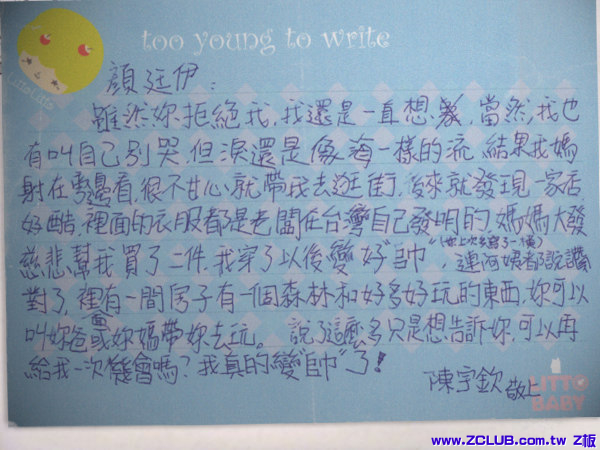 too young to write
顏廷伊：
雖然妳拒絕我,我還是一直想,當然,我也
有叫自己別哭,但淚還是像海一樣的流,結果我媽
射在旁邊看,很不甘心,就帶我去逛街,後來就發現一家店
好酷,裡面的衣服都是老闆在台灣自己發明的,媽媽大發
(上次多寫了一橫)
慈悲幫我買了二件,我穿了以後變好"帥"連阿姨都說讚
對了,裡有一間房子有一個森林和好多好玩的東西,妳可以
叫妳爸或妳媽帶妳去玩。說了這麼多只是想告訴妳,可以再
給我一次機會嗎?我真的變"帥"了!
陳宇欽敬上
LITTO
BABY
www.ZCLUB.com.tw Z板